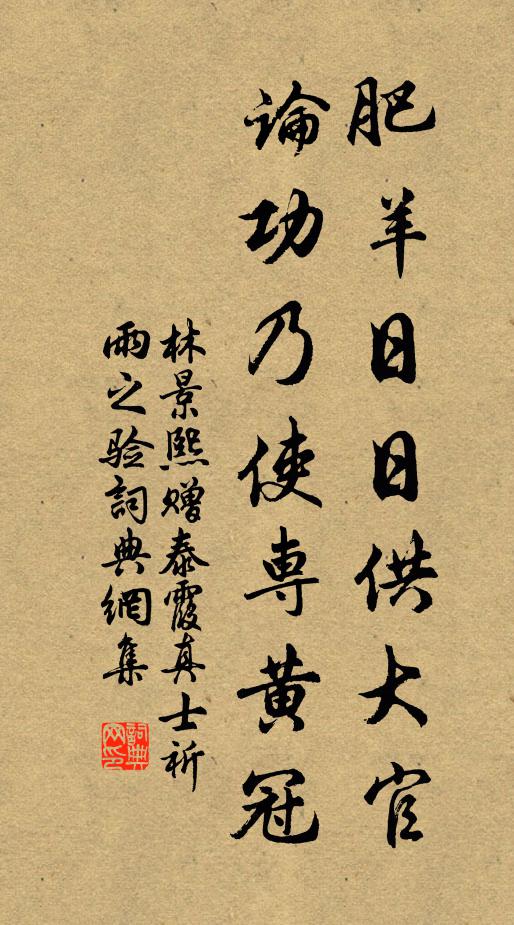 肥羊日日供大官
論功乃使専黄冠
林景熙赠泰霞真士祈
雨之验詞典網集
詞典网印